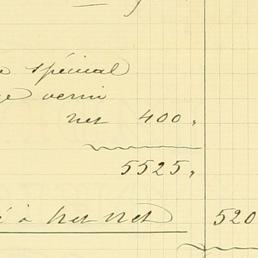 spécial
verni
net 400,
5525,
à net net 520